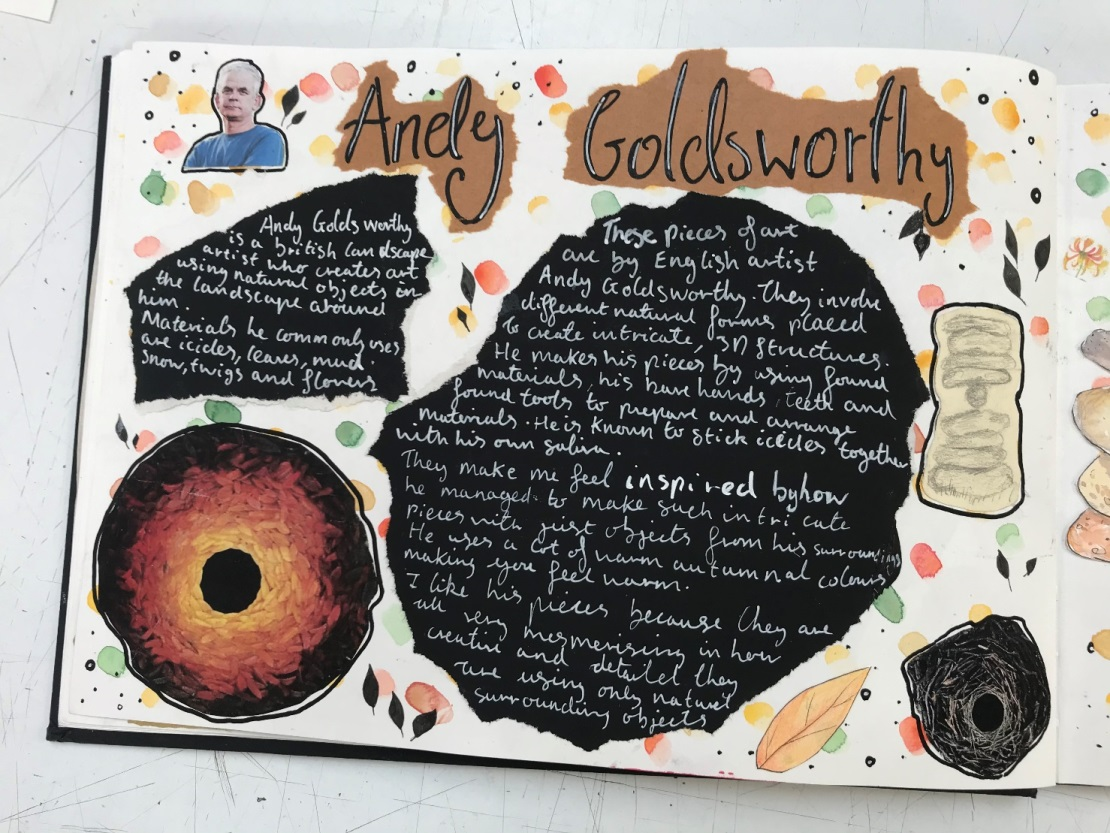 Andy Goldsworthy
Andy Golds worthy
is a british landscape
artist who creates art
using natural objects in
the landscape around
him.
Materials he commonly uses
are icicles, leaves, mud
snow, twigs and flowers
These pieces of art
are by English artist
Andy Goldsworthy. They involve
different natural forms placed
to create intricate, 3D structures.
He makes his pieces by using found
materials, his bare hands, teeth and
found tools to prepare and arrange
materials. He is known to stick icicles together
with his own saliva.
They make me feel inspired by how
he managed to make such intricate
pieces with just objects from his surroundings
He uses a lot of warm autumnal colours
making you feel warm.
I like his pieces because they are
all very mesmerising in how
creative and detailed they
are using only natural
surrounding objects